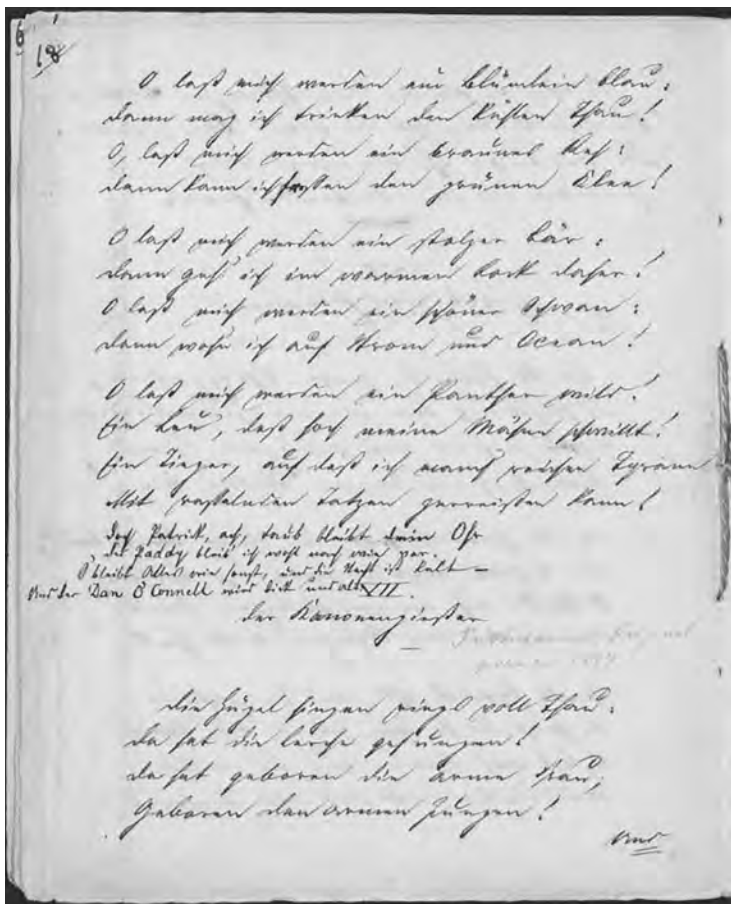 6
18
O laß mich werden ein Blümlein blau:
Dann mag ich trinken den kühlen Thau!
O, laß mich werden ein braunes Reh:
Dann kann ich fressen den grünen Klee!
O laß mich werden ein stolzer Bär:
Dann geh' ich im warmen Rock daher!
O laß mich werden ein schöner Schwan:
Dann wohn ich auf Strom und Ocean!
O laß mich werden ein Panther wild!
Ein Leu, daß hoch meine Mähne schwillt!
Ein Tieger, auf daß ich manch reichen Tyrann
Mit rasselnden Tatzen zerreißen kann!
Doch Patrick, ach, taub bleibt dein Ohr
Der Paddy bleib' ich wohl nach wie vor.
O bleibt Alles wie sonst, und die Nacht ist kalt –
Und der Dan O'Connell wird dick und alt.
VII.
Der Kanonengießer
Die Hügel hingen rings voll Thau;
Da hat die Lerche gesungen!
Da hat geboren die arme Frau,
Geboren den armen Jungen!
Und